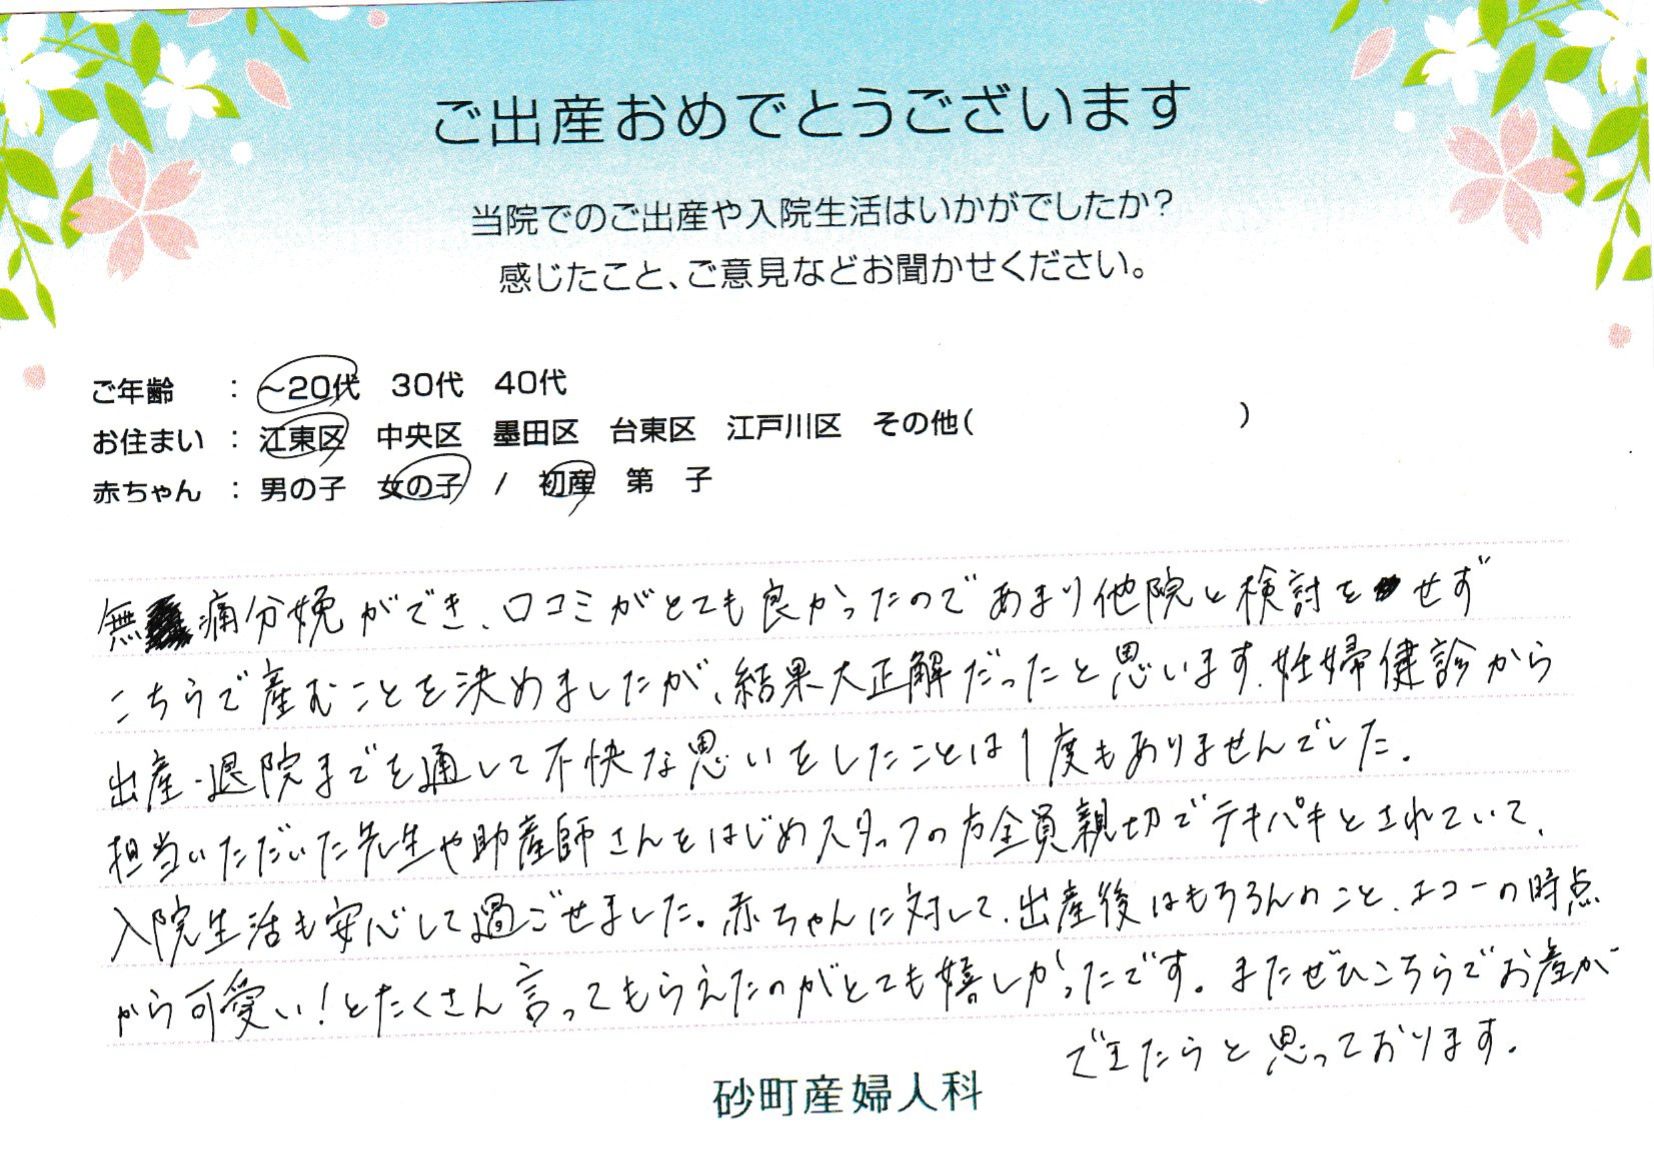 ご出産おめでとうございます
当院でのご出産や入院生活はいかがでしたか?
感じたこと、ご意見などお聞かせください。
ご年齢 : ~20代 30代 40代
お住まい : 江東区 中央区 墨田区 台東区 江戸川区 その他( )
赤ちゃん : 男の子 女の子 / 初産 第 子
無痛分娩ができ、口コミがとても良かったのであまり他院と検討をせず
こちらで産むことを決めましたが、結果大正解だったと思います。妊婦健診から
出産・退院までを通して不快な思いをしたことは1度もありませんでした。
担当いただいた先生や助産師さんをはじめスタッフの方全員親切でテキパキとされていて、
入院生活も安心して過ごせました。赤ちゃんに対して、出産後はもちろんのこと、エコーの時点
から可愛い!とたくさん言ってもらえたのがとても嬉しかったです。またぜひこちらでお産が
できたらと思っております。
砂町産婦人科